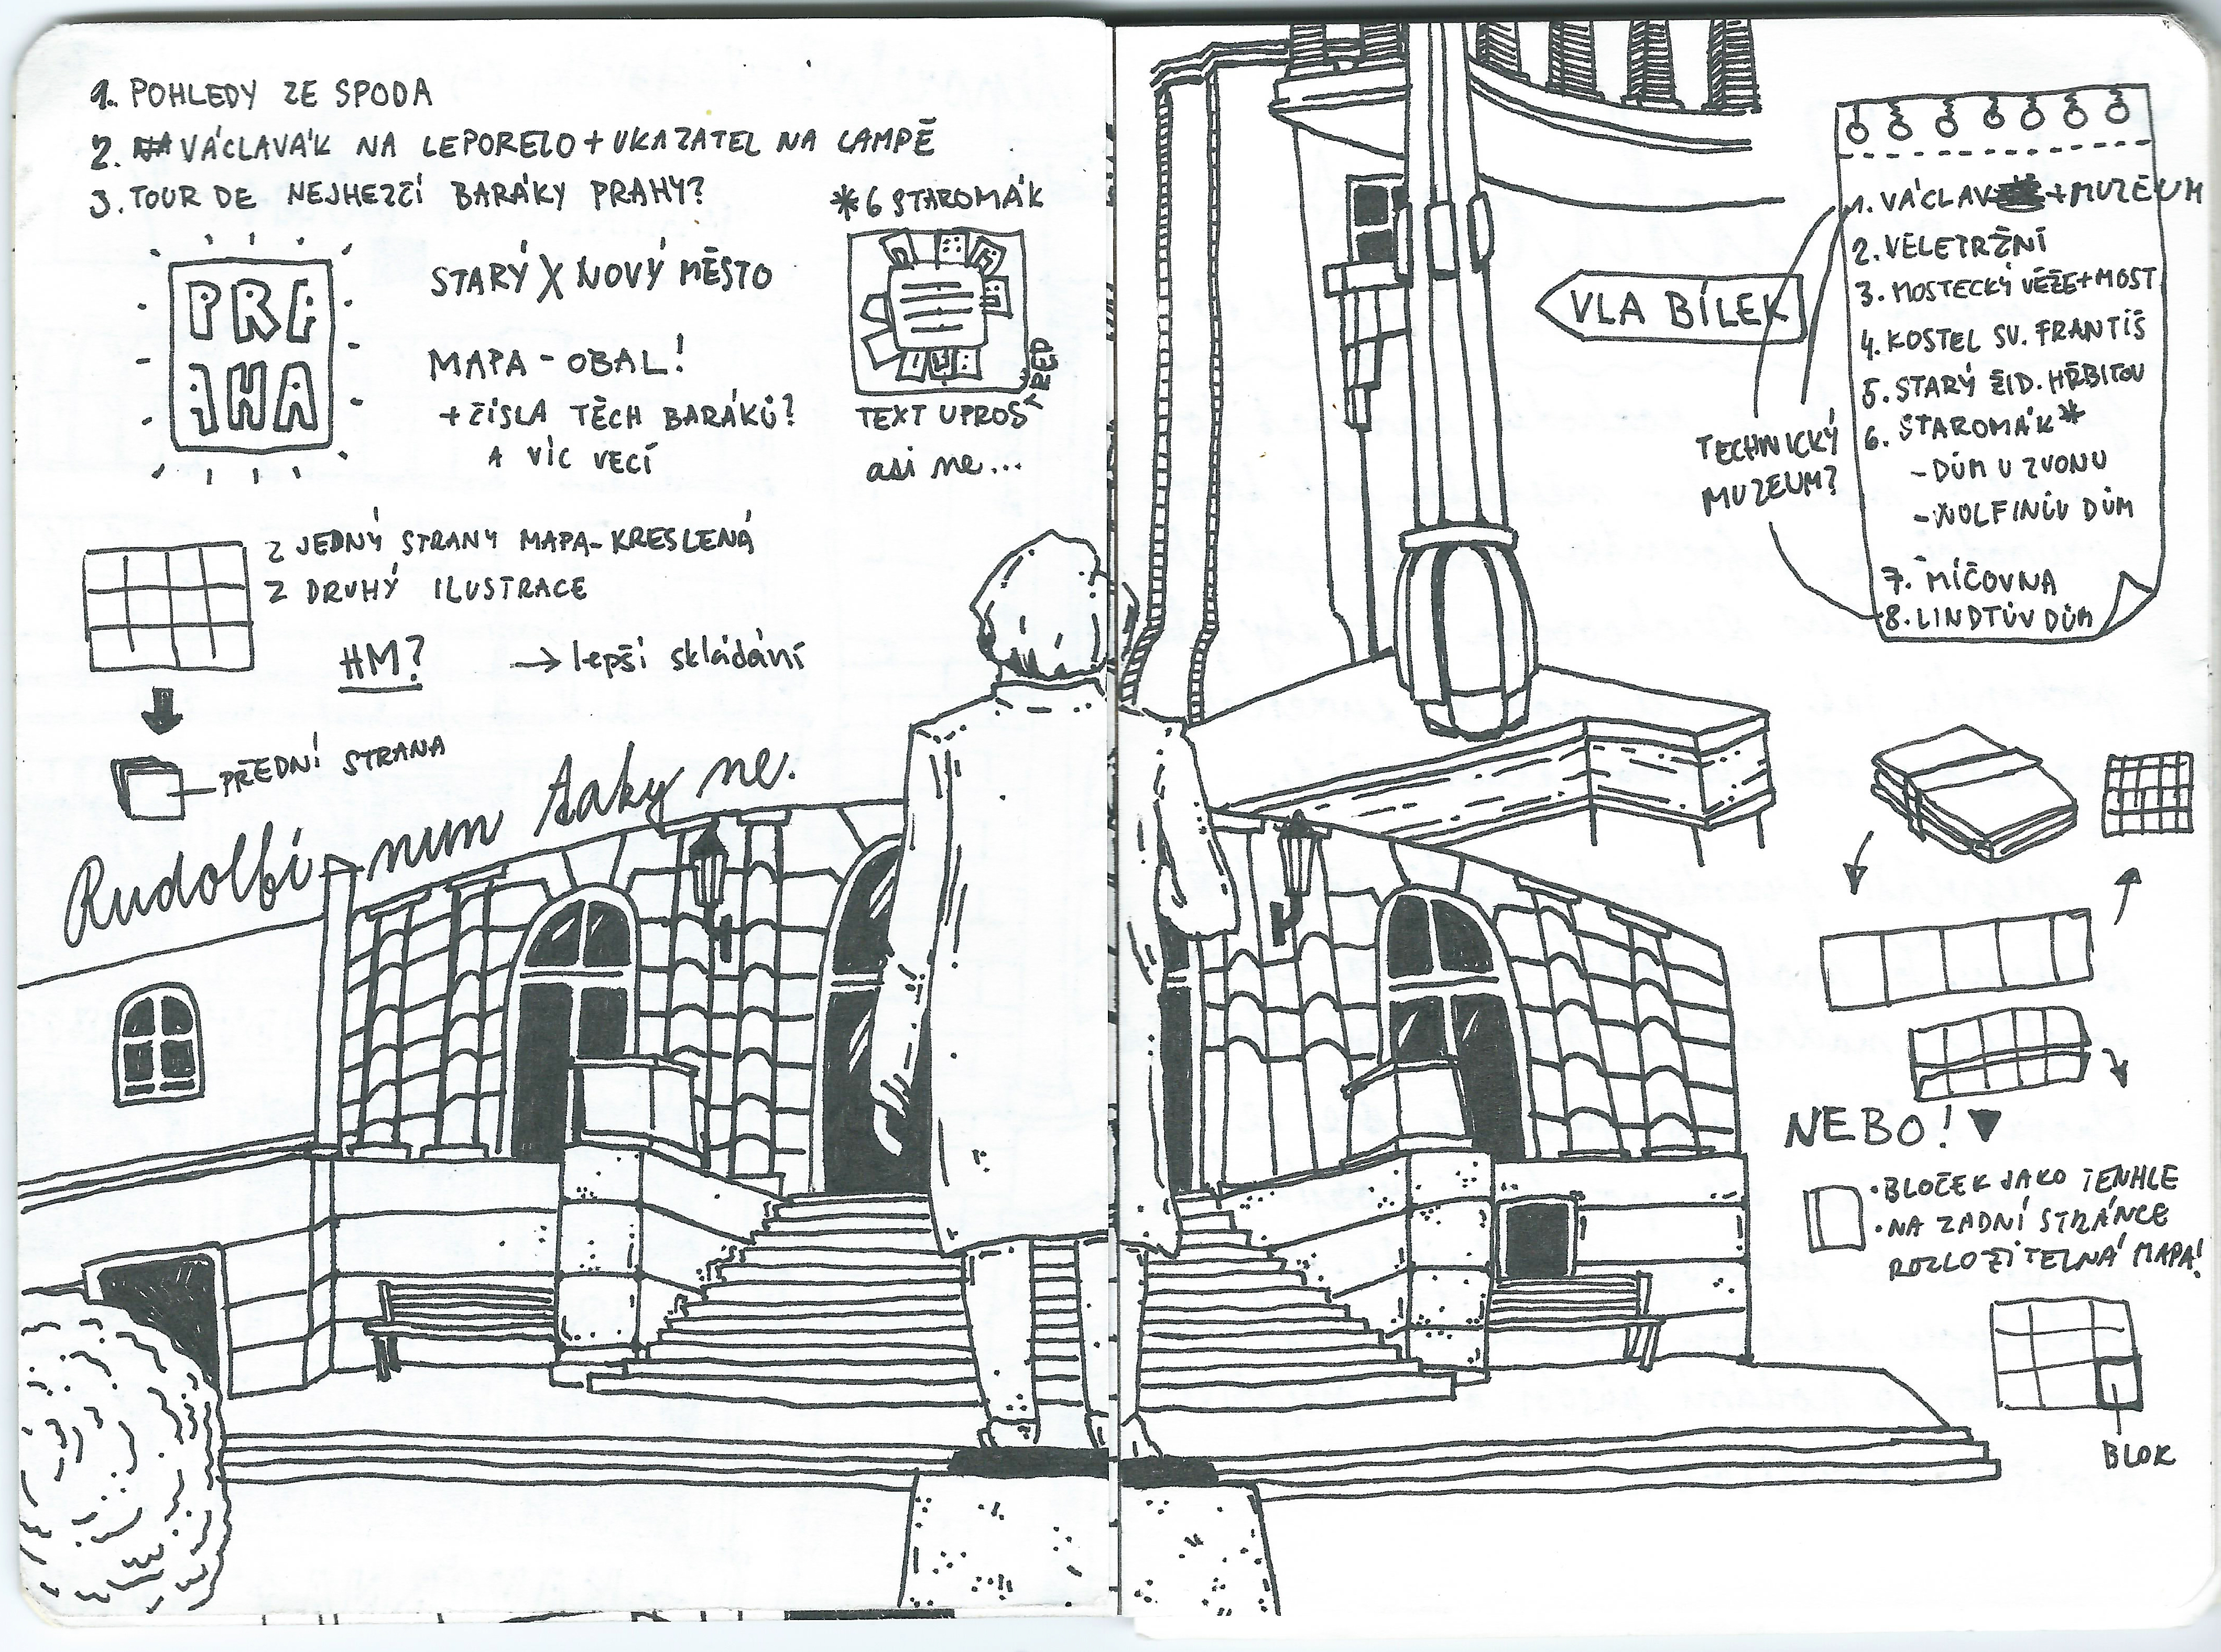 1. POHLEDY ZE SPODA
2. VÁCLAVÁK NA LEPORELO + UKAZATEL NA LAMPĚ
3. TOUR DE NEJHEZČÍ BARÁKY PRAHY?
PRA
HA
STARÝ X NOVÝ MĚSTO
MAPA - OBAL!
+ ČÍSLA TĚCH BARÁKŮ?
A VÍC VECÍ
*6 STAROMÁK
TEXT UPROSTŘED
asi ne...
Z JEDNÝ STRANY MAPA - KRESLENÁ
Z DRUHÝ ILUSTRACE
HM?
→ lepší skládání
PŘEDNÍ STRANA
Rudolfinum taky ne.
VLA BÍLEK
1. VÁCLAV + MUZEUM
2. VELETRŽNÍ
3. MOSTECKÝ VĚŽE + MOST
4. KOSTEL SV. FRANTIŠ
5. STARÝ ŽID. HŘBITOV
6. STAROMÁK*
- DŮM U ZVONU
- WOLFINŮV DŮM
7. MÍČOVNA
8. LINDTŮV DŮM
TECHNICKÝ
MUZEUM?
NEBO!
• BLOČEK JAKO TENHLE
• NA ZADNÍ STRÁNCE
ROZLOŽITELNÁ MAPA!
BLOK